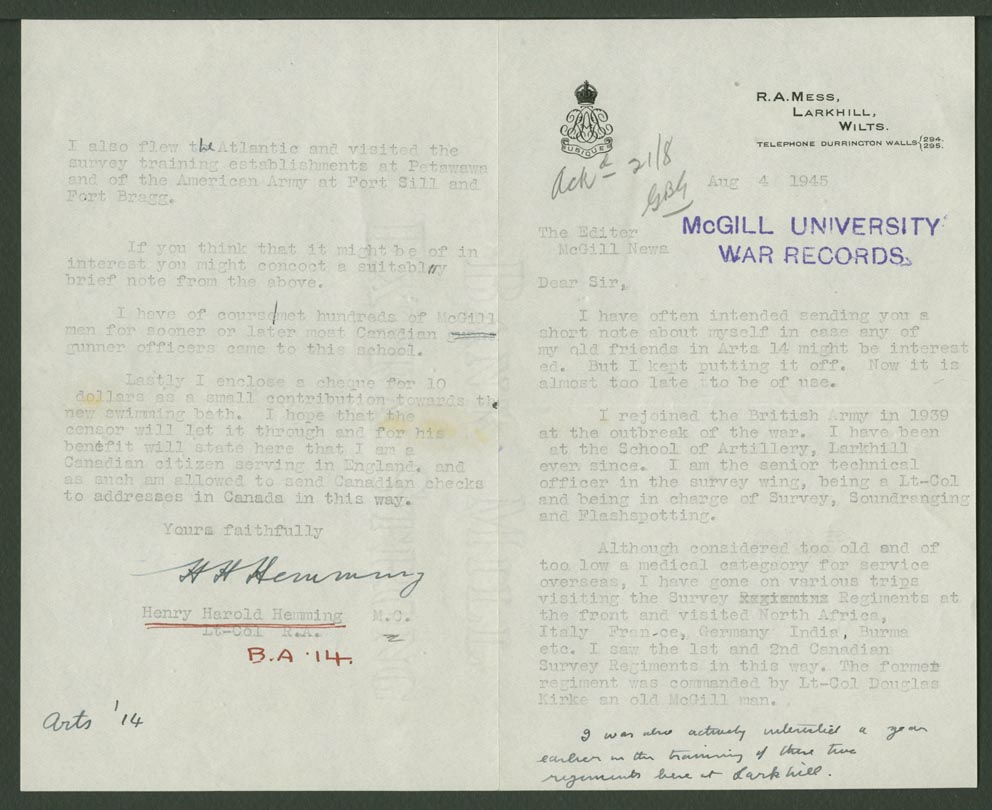 R.A. MESS,
LARKHILL,
WILTS.
TELEPHONE DURRINGTON WALLS {294. 295.
UBIQUE
Ackd 21/8
GBG
Aug 4 1945
McGILL UNIVERSITY
WAR RECORDS.
The Editor
McGill News
Dear Sir,
I have often intended sending you a
short note about myself in case any of
my old friends in Arts 14 might be interest
ed. But I kept putting it off. Now it is
almost too late to be of use.
I rejoined the British Army in 1939
at the outbreak of the war. I have been
at the School of Artillery, Larkhill
ever since. I am the senior technical
officer in the survey wing, being a Lt-Col
and being in charge of Survey, Soundranging
and Flashspotting.
Although considered too old and of
too low a medical categaory for service
overseas, I have gone on various trips
visiting the Survey Regiments at
the front and visited North Africa,
Italy Fran-ce, Germany India, Burma
etc. I saw the 1st and 2nd Canadian
Survey Regiments in this way. The former
regiment was commanded by Lt-Col Douglas
Kirke an old McGill man.
I was also actively interested a year
earlier in the training of these two
regiments here at Larkhill.
I also flew the Atlantic and visited the
survey training establishments at Petawawa
and of the American Army at Fort Sill and
Fort Bragg.
If you think that it might be of in
interest you might concoct a suitably
brief note from the above.
I have of course met hundreds of McGill
men for sooner or later most Canadian
gunner officers came to this school.
Lastly I enclose a cheque for 10
dollars as a small contribution towards the
new swimming bath. I hope that the
censor will let it through and for his
benefit will state here that I am a
Canadian citizen serving in England. and
as such am allowed to send Canadian checks
to addresses in Canada in this way.
Yours faithfully
H H Hemming
Henry Harold Hemming M.C.
Lt-Col R.A.
B.A '14.
Arts '14